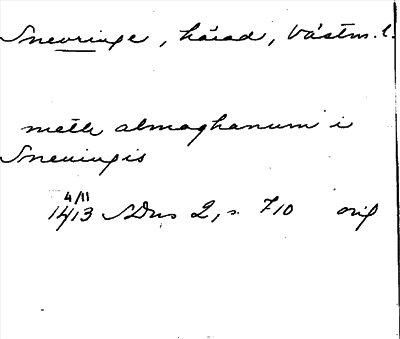 Snevringe, härad, Västm. l.
meth almoghanum i
Sneuingis
4/11
1413 SDns 2, s. 710 orig